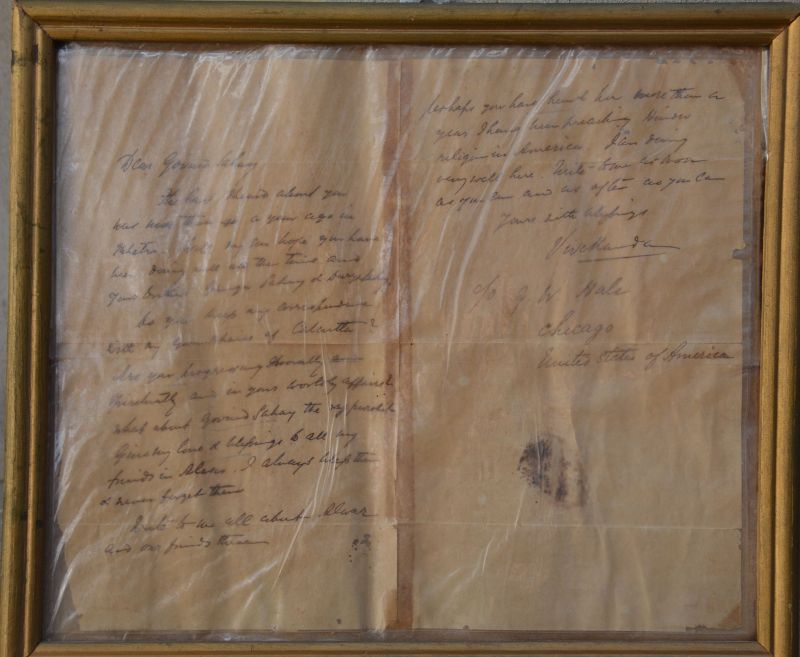 Dear Govind Sahay
The last I heard about you
was more than a year ago in
Khetri. I hope you have
been doing well all this time and
your brother
Do you keep any correspondence
with my Gurubhais of Calcutta?
Are you progressing Morally
Spiritually and in your worldly affairs?
What about Govind Sahay the
Give my love & blessings to all my
friends in Alwar. I always bless them
& never forget them
Write to me all about Alwar
and our friends there
Perhaps you have heard how more than a
year I have been preaching Hindu
religion in America. I am doing
very well here. Write to me as soon
as you can and as often as you can
Yours with blessings
Vivekananda
C/o G W Hale
Chicago
United States of America